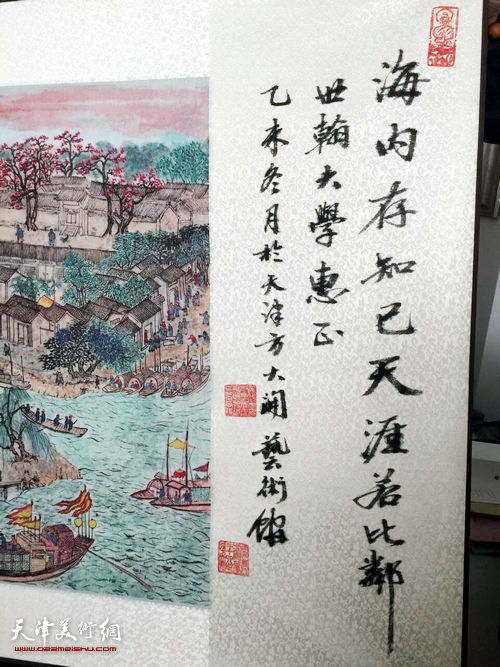 海内存知己天涯若比鄰
世翰大學惠正
乙未冬月於天津方大開藝術館
天津美術網
www.022meishu.com